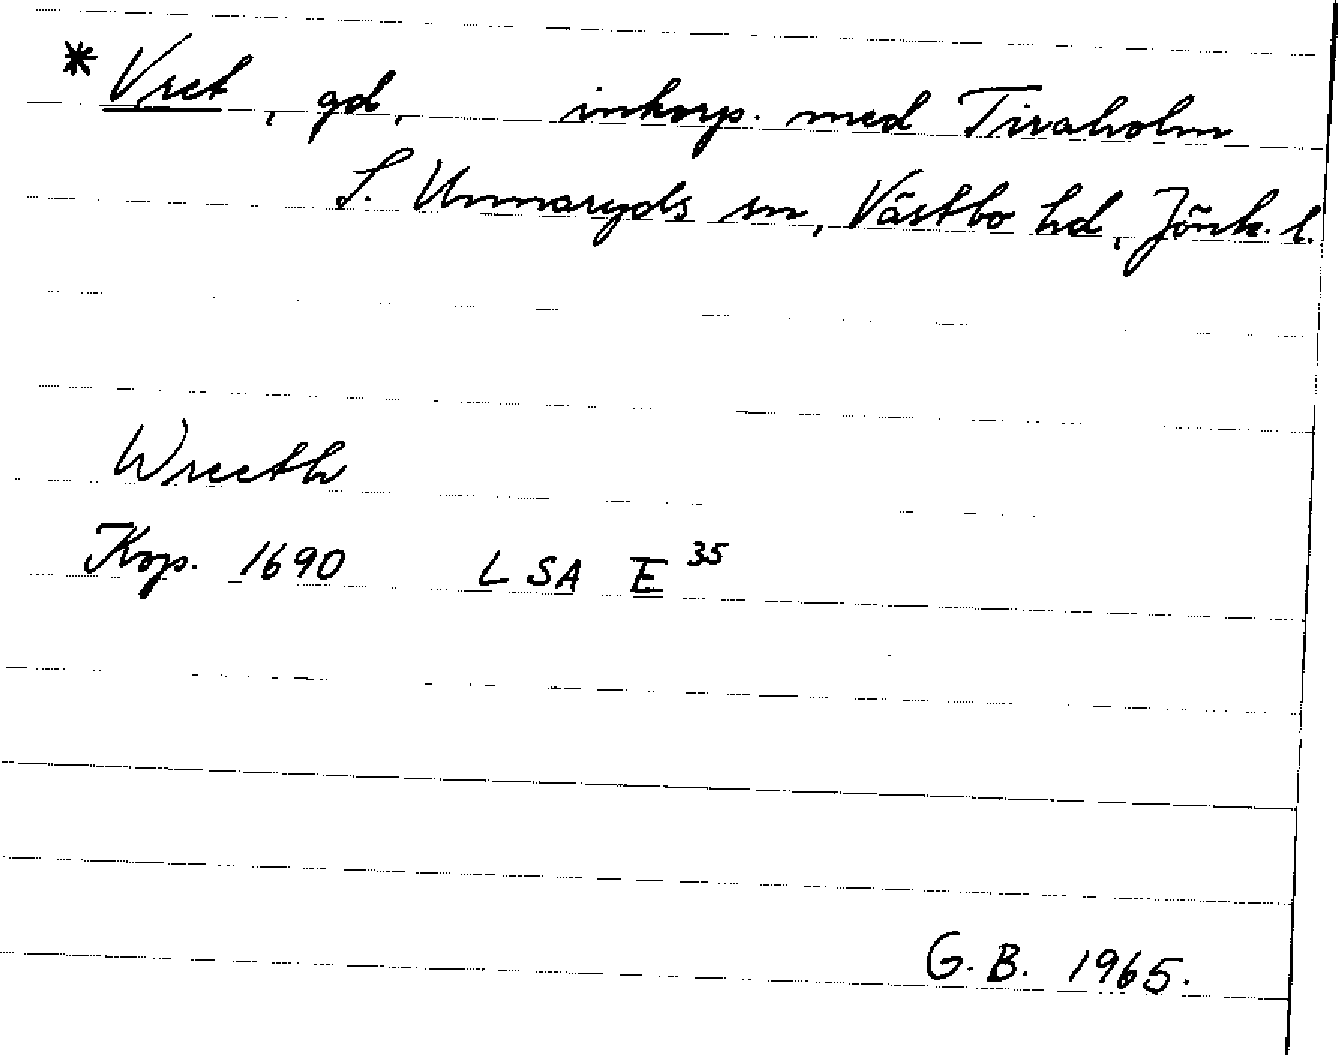 * Vret, gd, inkorp. med Tiraholm
S. Unnaryds sn, Västbo hd, Jönk. l.
Wreeth
Kop. 1690 LSA E 35
G.B. 1965.